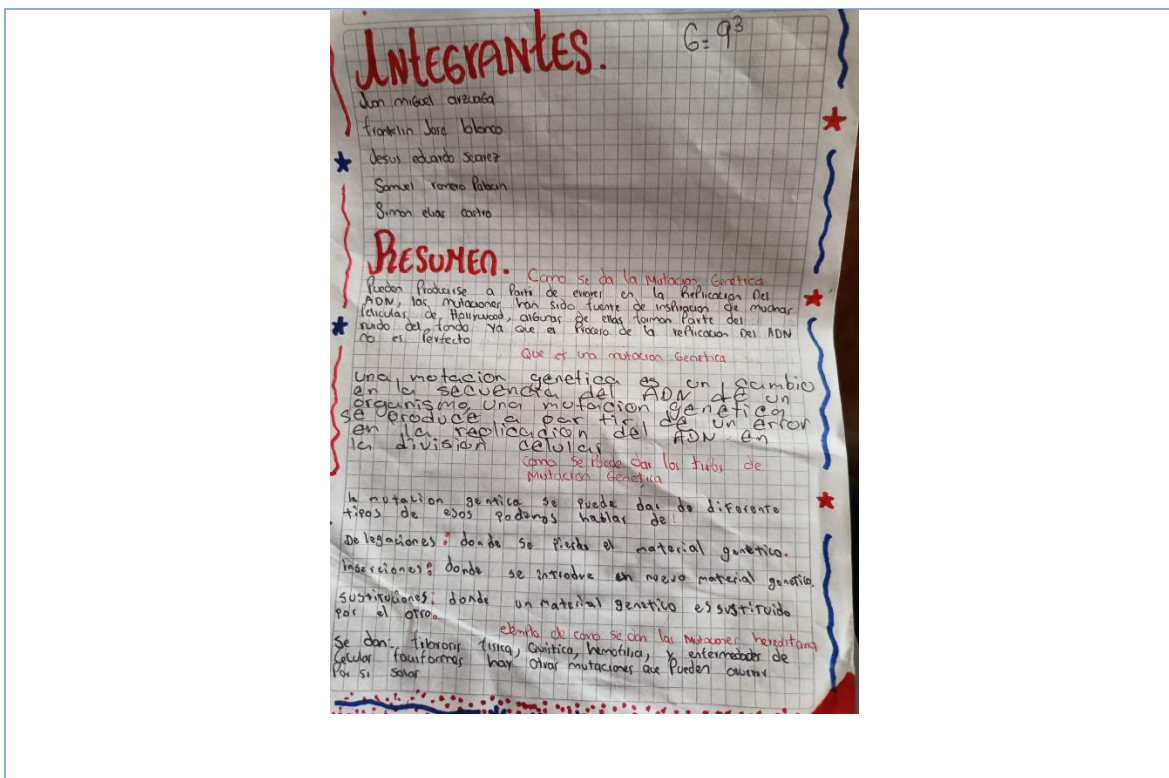 INTEGRANTES.
G= 9³
Juan miguel arzuaga
franklin José blanco
Jesus eduardo Suarez
Samuel romero Pabon
Simon elias castro
RESUMEN.
Como se da la Mutacion Genetica
Pueden Producirse a Parti de errores en la Replicacion Del
ADN, las mutaciones han sido fuente de inspiracion de muchas
Peliculas de Hollywood, algunas de ellas forman Parte del
ruido del fondo Ya que el Proceso de la replicacion Del ADN
no es Perfecto
Que es una mutacion Genetica
una motacion genetica es un cambio
en la secuencia del ADN de un
organismo, una mutacion genetica
se produce a partir de un error
en la replicacion del ADN en
la division celular
Como se Puede dar los tipos de
Mutacion Genetica
la motacion gentica se puede dar de diferente
tipos de esos podemos hablar de:
De legaciones: donde se Pierde el material genetico.
inserciones: donde se introduve en nuevo material genetico.
sustituciones: donde un material genetico es sustituido
por el otro.
ejemplo de como se dan las Mutaciones hereditaria
Se dan: fibrosis fisica, Quistica, hemofilia, y enfermedades de
celular fauiformes hay otras mutaciones que Pueden
Por si solas